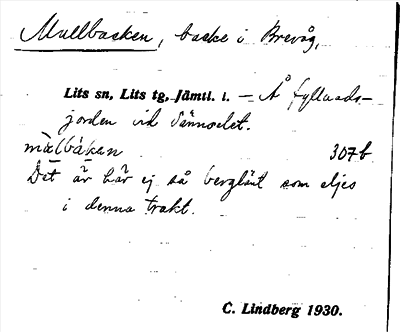 Mullbacken, backe i Brevåg,
Lits sn, Lits tg, Jämtl. l. — Å fyllnads-
jorden vid
mùlbákan 307b
Det är här ej så berglänt som eljes
i denna trakt.
C. Lindberg 1930.